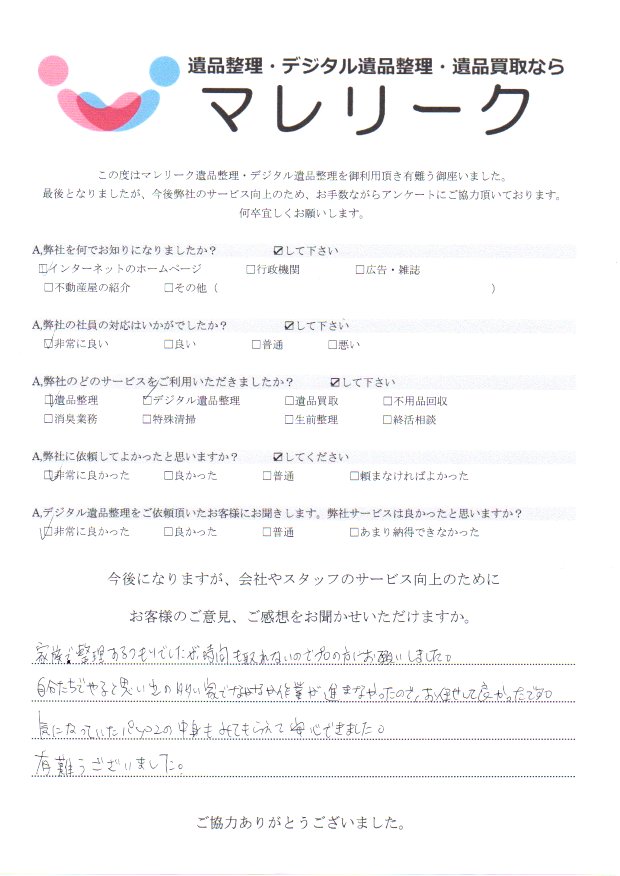 遺品整理・デジタル遺品整理・遺品買取なら
マレリーク
この度はマレリーク遺品整理・デジタル遺品整理を御利用頂き有難う御座いました。
最後となりましたが、今後弊社のサービス向上のため、お手数ながらアンケートにご協力頂いております。
何卒宜しくお願いします。
A,弊社を何でお知りになりましたか？ ☑して下さい
☑インターネットのホームページ □行政機関 □広告・雑誌
□不動産屋の紹介 □その他（ ）
A,弊社の社員の対応はいかがでしたか？ ☑して下さい
☑非常に良い □良い □普通 □悪い
A,弊社のどのサービスをご利用いただきましたか？ ☑して下さい
☑遺品整理 ☑デジタル遺品整理 □遺品買取 □不用品回収
□消臭業務 □特殊清掃 □生前整理 □終活相談
A,弊社に依頼してよかったと思いますか？ ☑してください
☑非常に良かった □良かった □普通 □頼まなければよかった
A,デジタル遺品整理をご依頼頂いたお客様にお聞きします。弊社サービスは良かったと思いますか？
☑非常に良かった □良かった □普通 □あまり納得できなかった
今後になりますが、会社やスタッフのサービス向上のために
お客様のご意見、ご感想をお聞かせいただけますか。
家族で整理するつもりでしたが、時間も取れないのでプロの方にお願いしました。
自分たちでやると思い出の家でなかなか作業が進まなかったので、お任せして良かったです。
気になっていたパソコンの中身もみてもらえて安心できました。
有難うございました。
ご協力ありがとうございました。